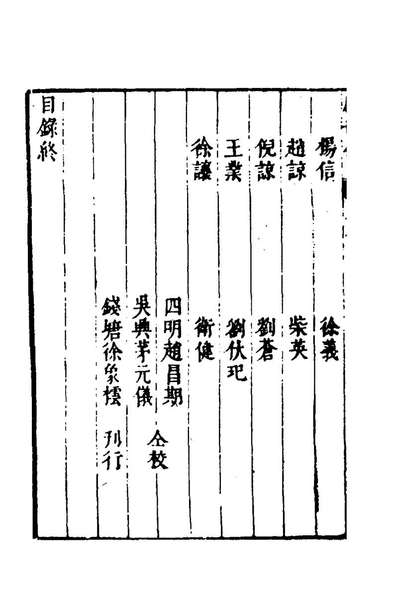 楊信　徐義
趙諒　柴英
倪諒　劉蒼
王業　劉伏玘
徐讓　衛健
四明趙昌期
吳興茅元儀　仝校
錢塘徐象橒　刊行
目錄終